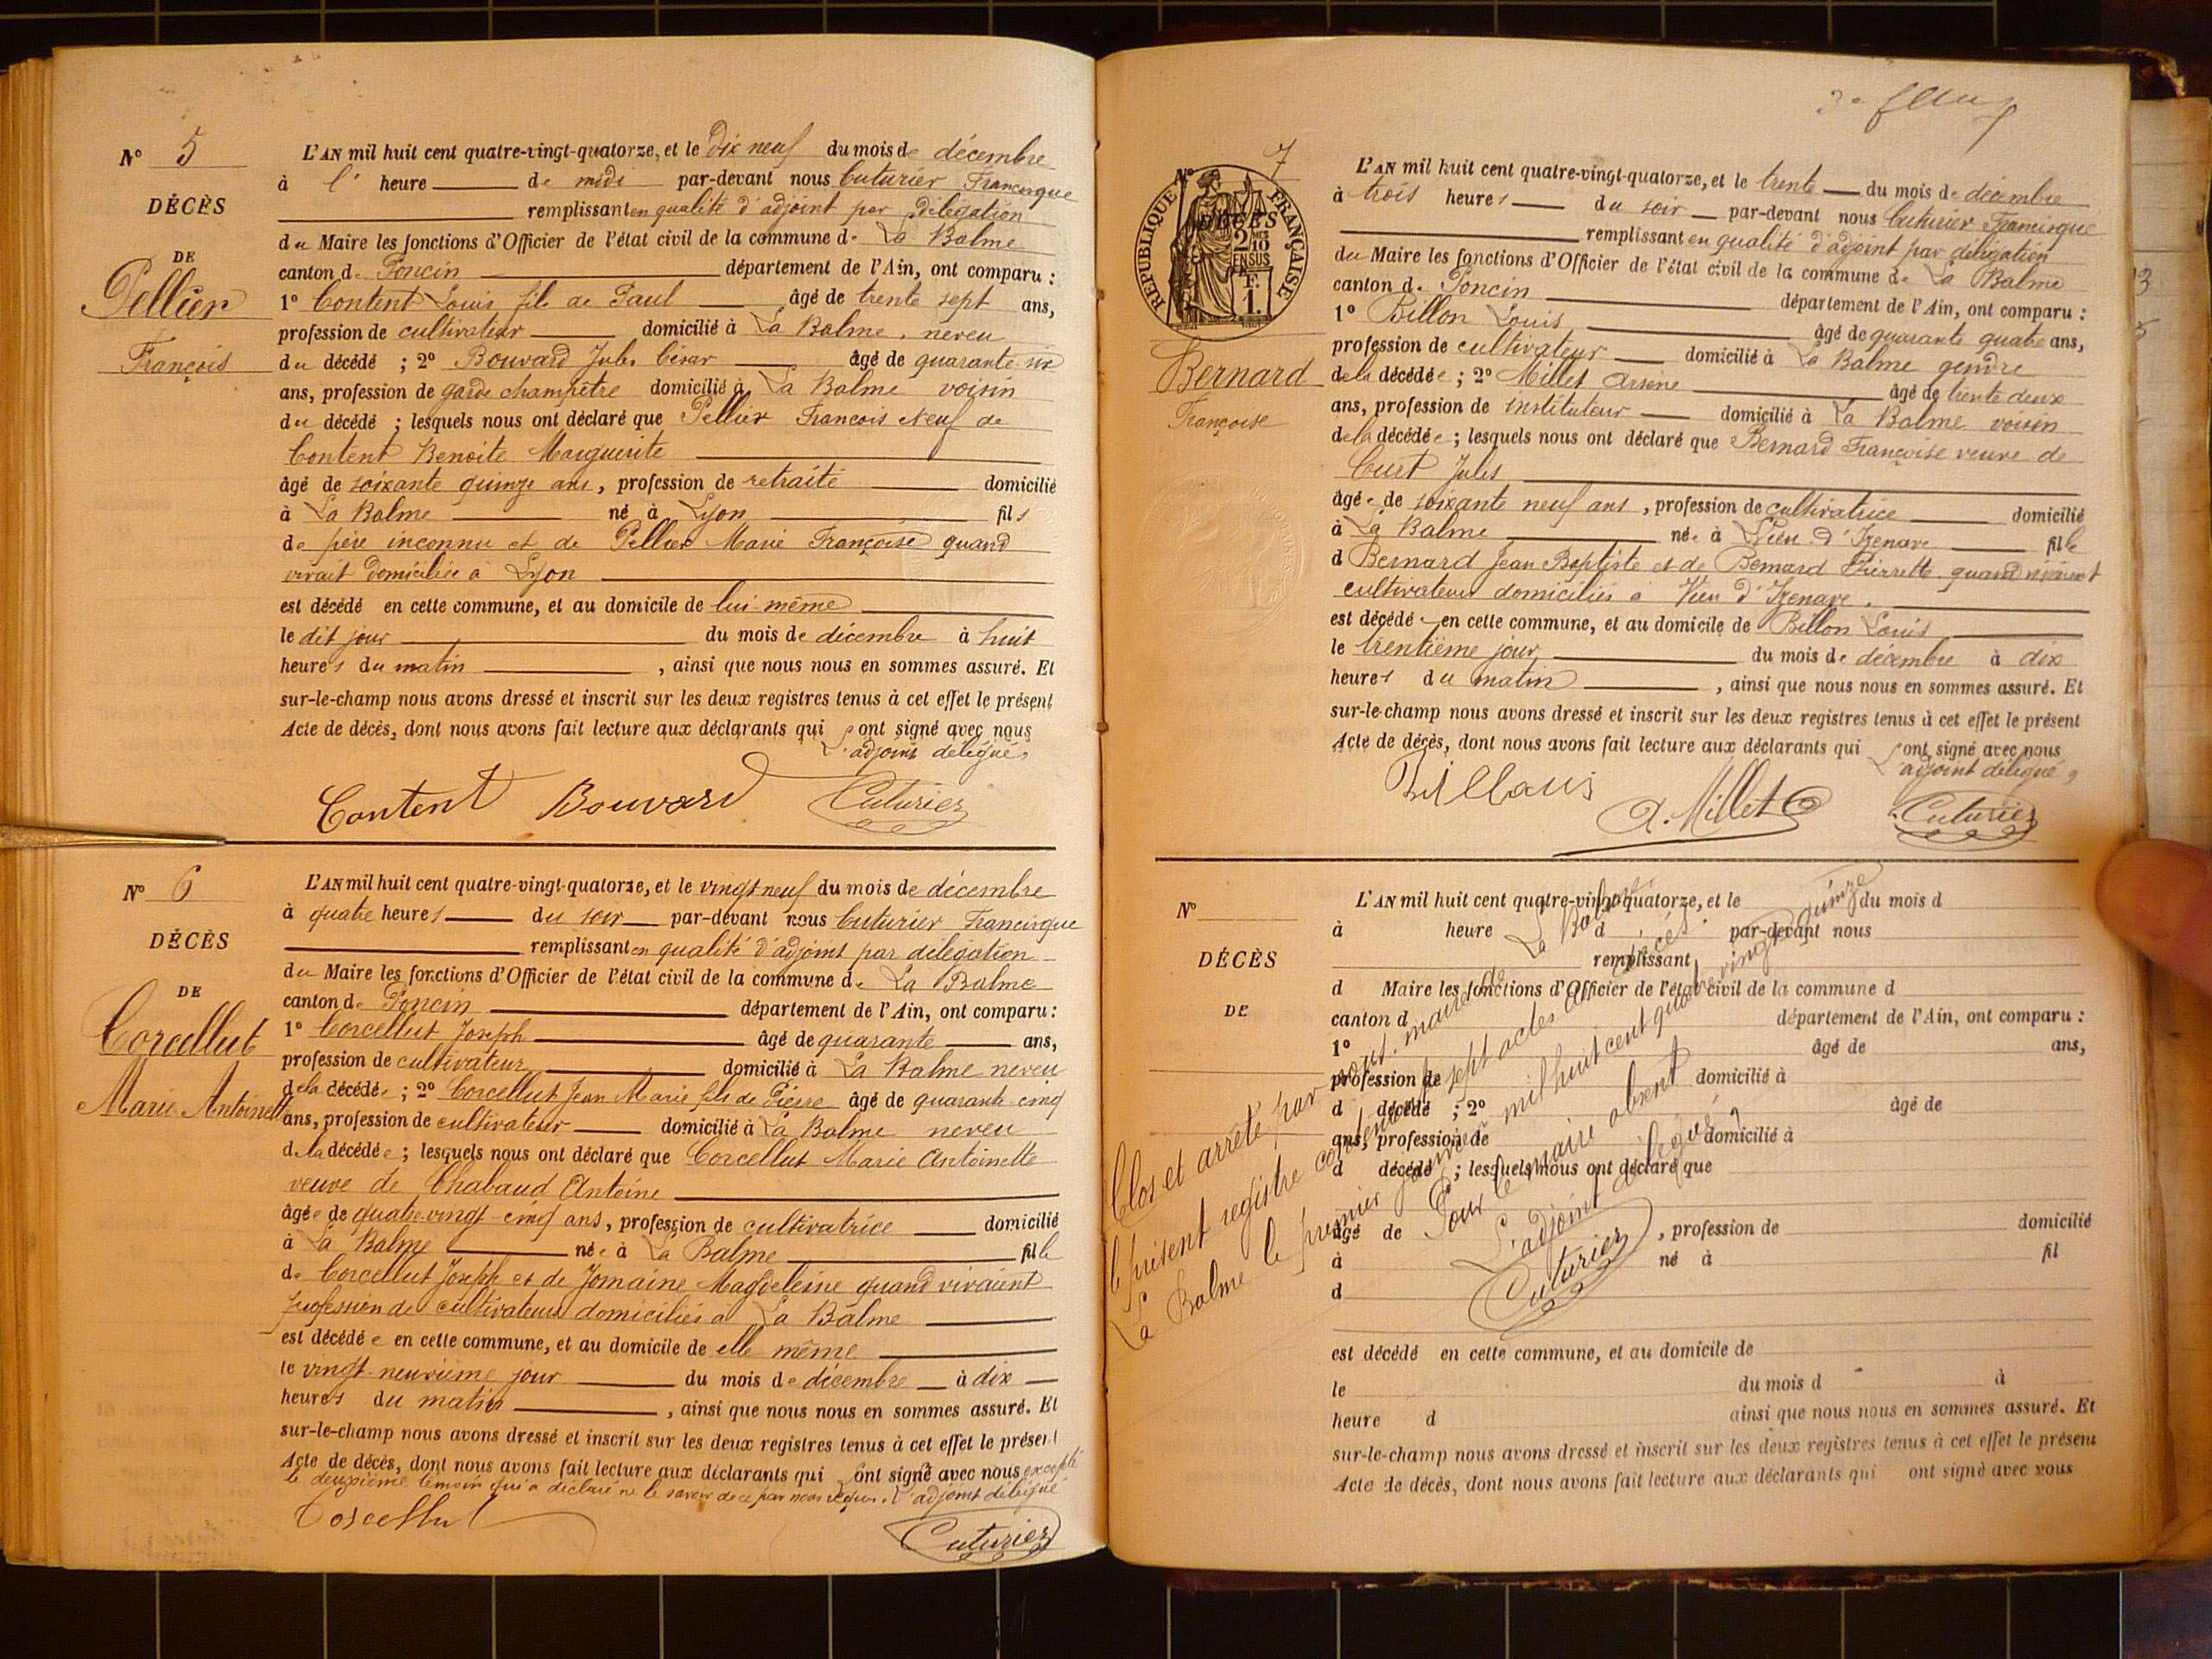 N° 5
DÉCÈS
DE
Pellier
François
L'AN mil huit cent quatre-vingt-quatorze, et le dix neuf du mois de décembre
à l' heure de midi par-devant nous Cuturier Francisque
remplissant en qualité d'adjoint par délégation
du Maire les fonctions d'Officier de l'état civil de la commune de La Balme
canton de Poncin département de l'Ain, ont comparu :
1° Content Louis fils de Paul âgé de trente sept ans,
profession de cultivateur domicilié à La Balme, neveu
du décédé ; 2° Bouvard Jules César âgé de quarante-six
ans, profession de garde champêtre domicilié à La Balme voisin
du décédé ; lesquels nous ont déclaré que Pellier François veuf de
Content Benoite Marguerite
âgé de soixante quinze ans, profession de retraité domicilié
à La Balme né à Lyon fils
de père inconnu et de Pellier Marie Françoise quand
vivait domiciliée à Lyon
est décédé en cette commune, et au domicile de lui-même
le dit jour du mois de décembre à huit
heures du matin , ainsi que nous nous en sommes assuré. Et
sur-le-champ nous avons dressé et inscrit sur les deux registres tenus à cet effet le présent
Acte de décès, dont nous avons fait lecture aux déclarants qui ont signé avec nous
L'adjoint délégué,
Content Bouvard Cuturier
N° 6
DÉCÈS
DE
Corcellut
Marie Antoinette
L'AN mil huit cent quatre-vingt-quatorze, et le vingt neuf du mois de décembre
à quatre heures du soir par-devant nous Cuturier Francisque
remplissant en qualité d'adjoint par délégation
du Maire les fonctions d'Officier de l'état civil de la commune de La Balme
canton de Poncin département de l'Ain, ont comparu :
1° Corcellut Joseph âgé de quarante ans,
profession de cultivateur domicilié à La Balme neveu
de la décédée ; 2° Corcellut Jean Marie fils de Pierre âgé de quarante cinq
ans, profession de cultivateur domicilié à La Balme neveu
de la décédée ; lesquels nous ont déclaré que Corcellut Marie Antoinette
veuve de Chabaud Antoine
âgée de quatre-vingt-cinq ans, profession de cultivatrice domicilié
à La Balme née à La Balme fille
de Corcellut Joseph et de Jomaine Magdeleine quand vivaient
profession de cultivateurs domiciliés à La Balme
est décédée en cette commune, et au domicile de elle même
le vingt-neuvième jour du mois de décembre à dix
heures du matin , ainsi que nous nous en sommes assuré. Et
sur-le-champ nous avons dressé et inscrit sur les deux registres tenus à cet effet le présent
Acte de décès, dont nous avons fait lecture aux déclarants qui ont signé avec nous excepté
le deuxième témoin qui a déclaré ne le savoir de ce par nous requis. L'adjoint délégué
Corcellut Cuturier
7
N°
RÉPUBLIQUE FRANÇAISE
DÉCÈS
2/10
EN SUS
1 F.
Bernard
Françoise
L'AN mil huit cent quatre-vingt-quatorze, et le trente du mois de décembre
à trois heures du soir par-devant nous Cuturier Francisque
remplissant en qualité d'adjoint par délégation
du Maire les fonctions d'Officier de l'état civil de la commune de La Balme
canton de Poncin département de l'Ain, ont comparu :
1° Billon Louis âgé de quarante quatre ans,
profession de cultivateur domicilié à La Balme gendre
de la décédée ; 2° Millet Arsène âgé de trente deux
ans, profession de instituteur domicilié à La Balme voisin
de la décédée ; lesquels nous ont déclaré que Bernard Françoise veuve de
Curt Jules
âgée de soixante neuf ans, profession de cultivatrice domicilié
à La Balme née à Vieu d'Izenave fille
d Bernard Jean Baptiste et de Bernard Pierrette quand vivaient
cultivateurs domiciliés à Vieu d'Izenave.
est décédée en cette commune, et au domicile de Billon Louis
le trentième jour du mois de décembre à dix
heures du matin , ainsi que nous nous en sommes assuré. Et
sur-le-champ nous avons dressé et inscrit sur les deux registres tenus à cet effet le présent
Acte de décès, dont nous avons fait lecture aux déclarants qui ont signé avec nous
L'adjoint délégué,
A. Millet Cuturier
N°
DÉCÈS
DE
L'AN mil huit cent quatre-vingt-quatorze, et le du mois d
à heure d par-devant nous
remplissant
d Maire les fonctions d'Officier de l'état civil de la commune d
canton d département de l'Ain, ont comparu :
1° âgé de ans,
profession de domicilié à
d décédé ; 2° âgé de
ans, profession de domicilié à
d décédé ; lesquels nous ont déclaré que
âgé de , profession de domicilié
à né à fil
d
est décédé en cette commune, et au domicile de
le du mois d à
heure d ainsi que nous nous en sommes assuré. Et
sur-le-champ nous avons dressé et inscrit sur les deux registres tenus à cet effet le présent
Acte de décès, dont nous avons fait lecture aux déclarants qui ont signé avec nous
Clos et arrêté par nous, maire de La Balme
le présent registre contenant sept actes de décès.
La Balme le premier janvier mil huit cent quatre vingt quinze
Pour le maire absent
L'adjoint délégué,
Cuturier